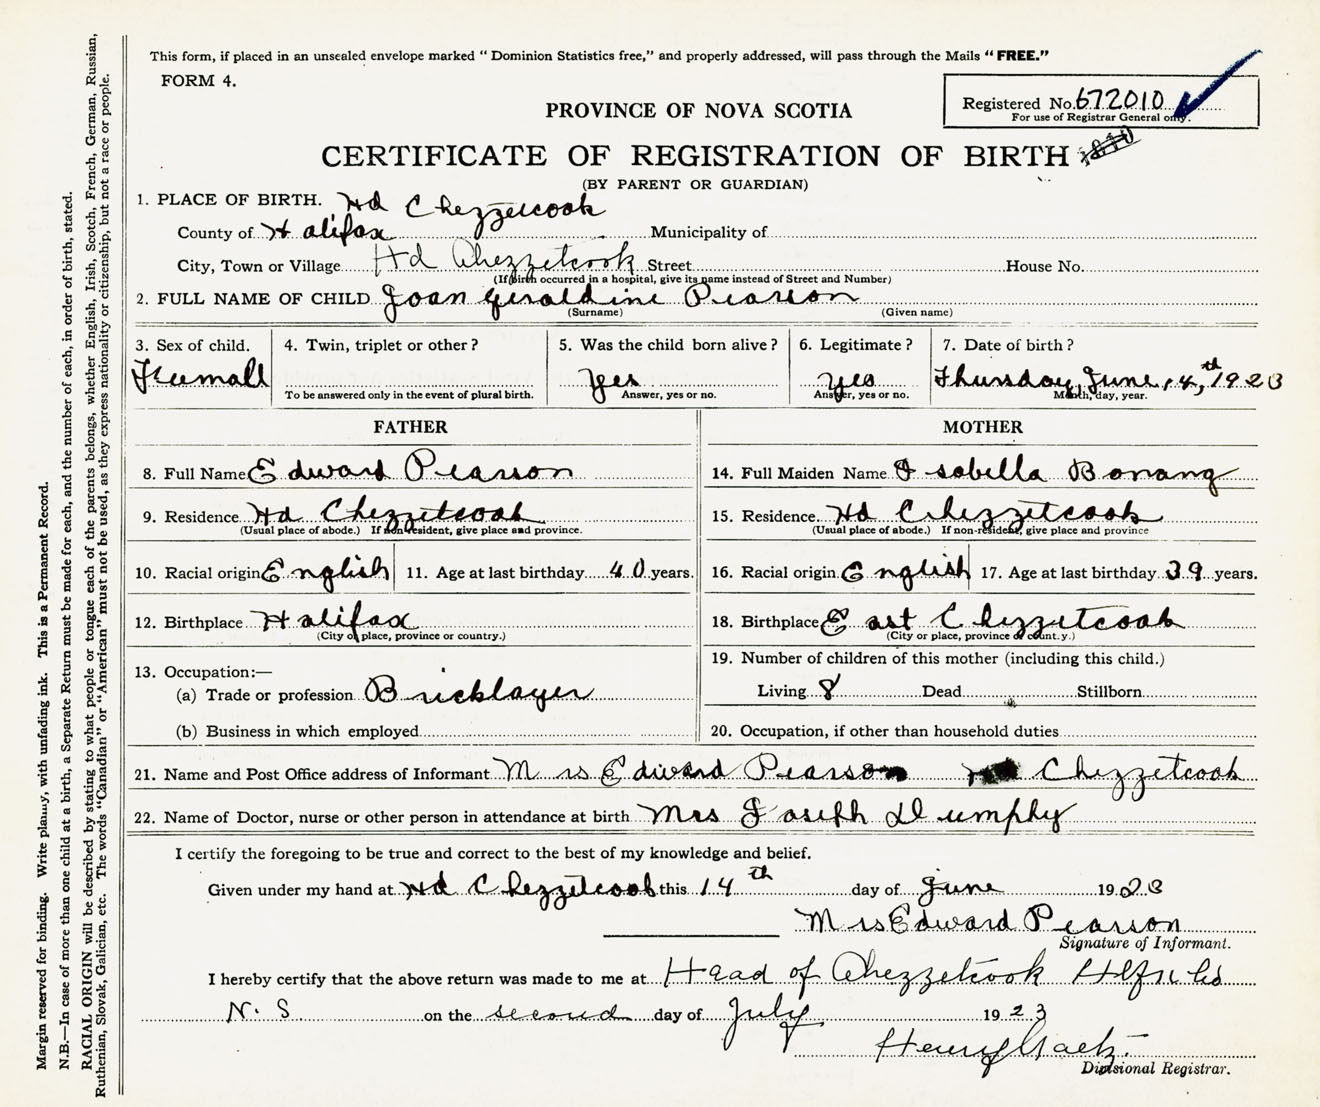 This form, if placed in an unsealed envelope marked “ Dominion Statistics free,” and properly addressed, will pass through the Mails “ FREE.”
FORM 4.
Registered No. 672010
For use of Registrar General only.
PROVINCE OF NOVA SCOTIA
CERTIFICATE OF REGISTRATION OF BIRTH
(BY PARENT OR GUARDIAN)
1. PLACE OF BIRTH. Hd Chezzetcook
County of Halifax Municipality of
City, Town or Village Hd Chezzetcook Street House No.
(If birth occurred in a hospital, give its name instead of Street and Number)
2. FULL NAME OF CHILD Joan Geraldine Pearson
(Surname) (Given name)
3. Sex of child. 4. Twin, triplet or other? 5. Was the child born alive? 6. Legitimate? 7. Date of birth?
Feemall Yes yes Thursday, June, 14, th 1923
To be answered only in the event of plural birth. Answer, yes or no. Answer, yes or no. Month, day, year.
FATHER MOTHER
8. Full Name Edward Pearson 14. Full Maiden Name Isobella Bonang
9. Residence Hd Chezzetcook 15. Residence Hd Chezzetcook
(Usual place of abode.) If non-resident, give place and province. (Usual place of abode.) If non-resident, give place and province
10. Racial origin English 11. Age at last birthday 40 years. 16. Racial origin English 17. Age at last birthday 39 years.
12. Birthplace Halifax 18. Birthplace East Chezzetcook
(City or place, province or country.) (City or place, province or count.y.)
13. Occupation:— 19. Number of children of this mother (including this child.)
(a) Trade or profession Bricklayer Living 8 Dead Stillborn
(b) Business in which employed 20. Occupation, if other than household duties
21. Name and Post Office address of Informant Mrs Edward Pearson Chezzetcook
22. Name of Doctor, nurse or other person in attendance at birth Mrs Joseph Dumphy
I certify the foregoing to be true and correct to the best of my knowledge and belief.
Given under my hand at Hd Chezzetcook this 14th day of June 1923
Mrs Edward Pearson
Signature of Informant.
I hereby certify that the above return was made to me at Head of Chezzetcook
N. S on the second day of July 1923
Henry Gaetz
Divisional Registrar.
Margin reserved for binding. Write plainly, with unfading ink. This is a Permanent Record.
N.B.—In case of more than one child at a birth, a Separate Return must be made for each, and the number of each, in order of birth, stated.
RACIAL ORIGIN will be described by stating to what people or tongue each of the parents belongs, whether English, Irish, Scotch, French, German, Russian,
Ruthenian, Slovak, Galician, etc. The words “Canadian” or “American” must not be used, as they express nationality or citizenship, but not a race or people.